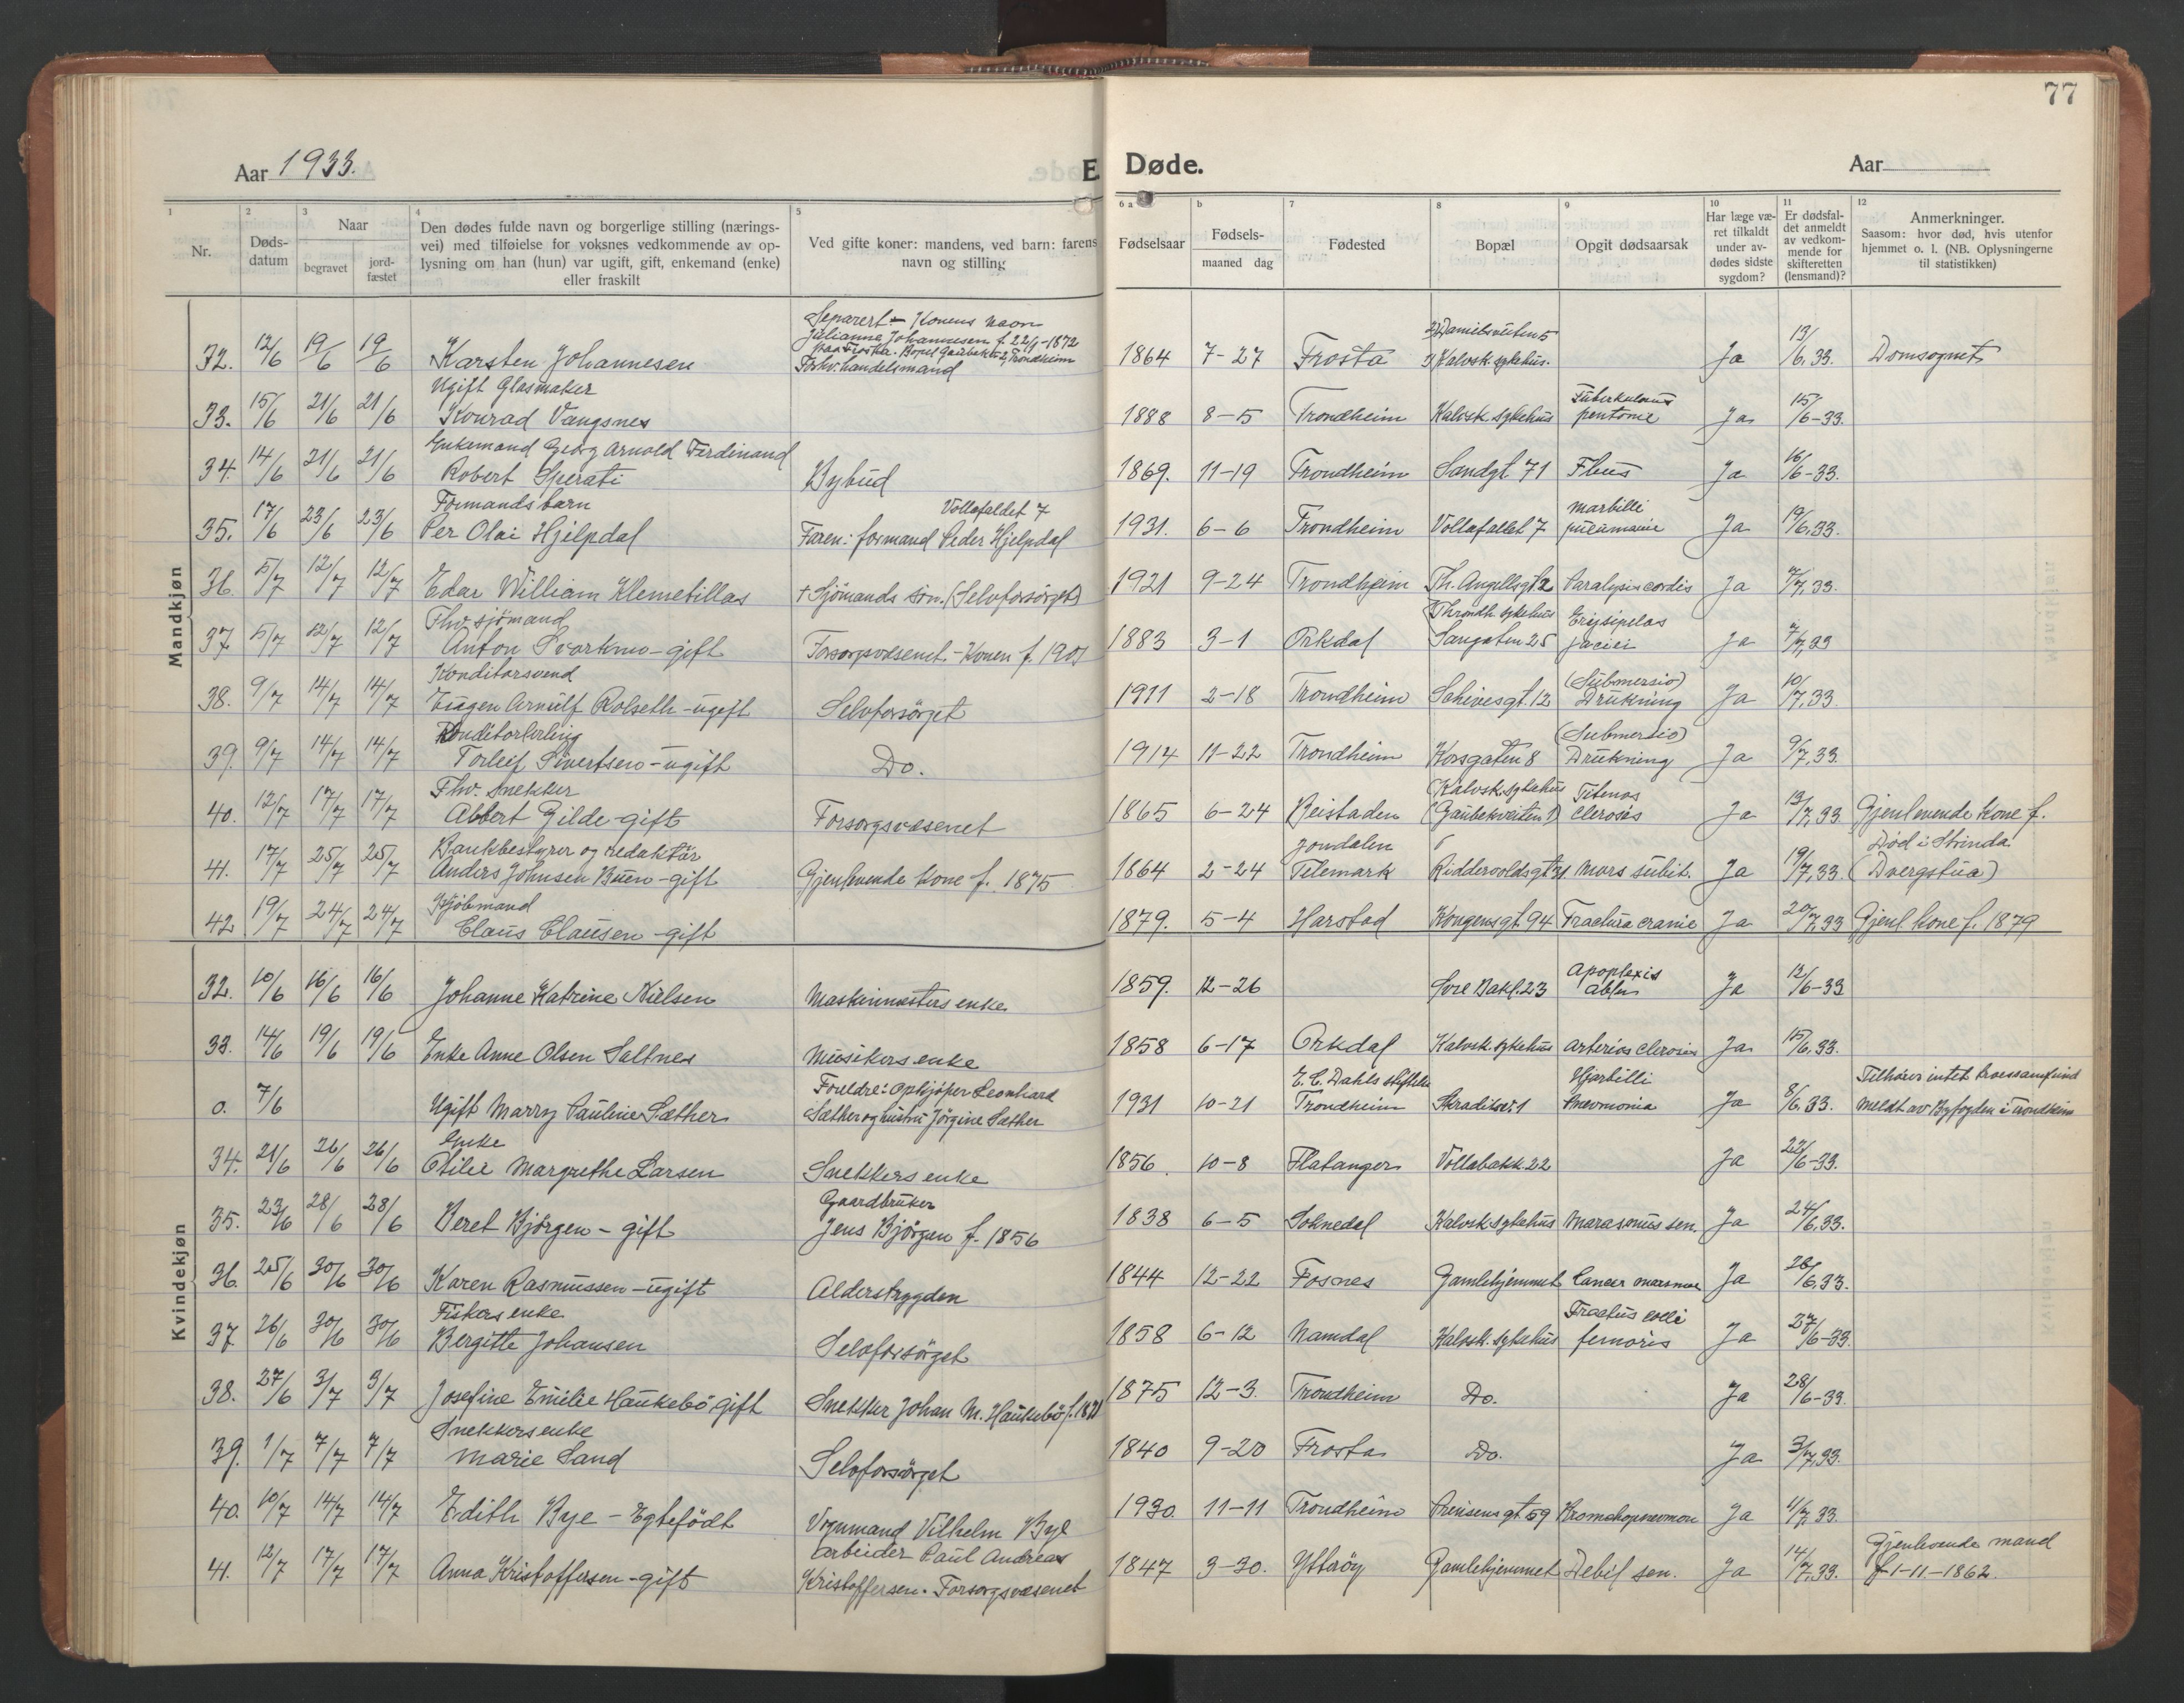 77
Aar 1933.
E
Døde.
Aar
1
2 Døds-datum
3 Naar
4 Den dødes fulde navn og borgerlige stilling (nærings-
vei) med tilføielse for voksnes vedkommende av op-
lysning om han (hun) var ugift, gift, enkemand (enke)
eller fraskilt
5 Ved gifte koner: mandens, ved barn: farens
navn og stilling
Nr.
begravet
jord-fæstet
6 a Fødselsaar
b Fødsels-
maaned dag
7 Fødested
8 Bopæl
9 Opgit dødsaarsak
10 Har læge væ-
ret tilkaldt
under av-
dødes sidste
sygdom?
11 Er dødsfal-
det anmeldt
av vedkom-
mende for
skifteretten
(lensmand)?
12 Anmerkninger.
Saasom: hvor død, hvis utenfor
hjemmet o. l. (NB. Oplysningerne
til statistikken)
Mandkjøn
Separert - Konens navn
Julianna Johannesen f. 22/9-1872
Bopel Gaubekv. 2, Trondheim
32. 12/6 19/6 19/6 Karsten Johannesen Forhv. handelsmand 1864 7-27 Frosta Danielsveiten 5
Kalvsk. sykehus. Ja 13/6.33. Domsognet
Ugift Glasmaker
33. 15/6 21/6 21/6 Konrad Vangsnes 1888 8-5 Trondheim Kalvsk. sykehus Tuberkuløus Ja 15/6-33.
Enkemand Georg Arnold Ferdinand
34. 14/6 21/6 21/6 Robert Sperati Bybud 1869. 11-19 Trondheim Sandgt 71 Ja 16/6-33.
Formands barn Vollafaldet 7
35. 17/6 23/6 23/6 Per Olai Hjelpdal Faren: formand Peder Hjelpdal 1931. 6-6 Trondheim Vollafallet 7 Marbilli Ja 19/6.33.
36. 5/7 12/7 12/7 Edar William Klemetillas + Sjömands sön. (Selvforsörget) 1921 9-24 Trondheim Th. Angellsgt. 2 Paralysis cordis Ja 7/7.33.
Fhv. sjömand
37. 5/7 12/7 12/7 Anton Svorkmo - gift Forsorgsvæsenet. - Konen f. 1901 1883 3-1 Orkdal Throndh. sykehus
Sangaten 25 Erysipelas faciei Ja 7/7.33
Konditorsvend
38. 9/7 14/7 14/7 Eugen Arnulf Rolseth - ugift Selvforsörget 1911 2-18 Trondheim Schivesgt. 12 (Submersio)
Drukning Ja 10/7.33.
Konditorlerling
39. 9/7 14/7 14/7 Torleif Sivertsen - ugift Do. 1914 11-22 Trondheim Korsgaten 8 (Submersio)
Drukning Ja 9/7.33.
Fhv. Snekker
40. 12/7 17/7 17/7 Albert Gilde - gift Forsorgsvæsenet 1865 6-24 Beistaden Kalvsk. sykehus
(Gaubekveiten 1) clerosis Ja 13/7.33. Gjenlevende kone f.
Bankbestyrer og redaktör
41. 17/7 25/7 25/7 Anders Johnsen Buen - gift Gjenlevende kone f. 1875 1864 2-24 Jondalen
Telemark Riddervoldsgt 31 Mors subit. Ja 19/7.33. Död i Strinda
(Dvergstua)
Kjöbmand
42. 19/7 24/7 24/7 Claus Clausen - gift 1879. 5-4 Harstad Kongensgt. 94 Fractura cranie Ja 20/7.33 Gjenl. kone f. 1879
Kvindekjøn
32. 10/6 16/6 16/6 Johanne Katrine Nielsen Maskinmesters enke 1859. 12-26 Övre Bakl. 23 Apoplexis Ja 12/6-33
33. 14/6 19/6 19/6 Enke Anne Olsen Saltnes Musikers enke 1858 6-17 Orkdal Kalvsk. sykehus Arterios clerosis Ja 15/6.33.
0. 7/6 Ugift Marry Pauline Sæther Foreldre: Opkjöper Leonhard
Sæther og hustru Jörgine Sæther 1931 10-21 E. C. Dahls stiftelse
Trondheim Pnevmonia Ja 8/6.33. Tilhörer intet troessamfund
meldt av Byfogden i Trondheim
Enke
34. 21/6 26/6 26/6 Otilie Margrethe Larsen Snekkers enke 1856. 10-8 Flatanger Vollabakk. 22 Ja 22/6-33.
35. 23/6 28/6 28/6 Beret Björgen - gift Gaardbruker
Jens Björgen f. 1856 1838 6-5 Soknedal Kalvsk. sykehus Marasmus sen. Ja 24/6.33.
36. 25/6 30/6 30/6 Karen Rasmussen - ugift Alderstrygden 1844 12-22 Fosnes Gamlehjemmet Cancer mammae Ja 26/6.33.
Fiskers enke
37. 26/6 30/6 30/6 Bergitte Johansen Selvforsörget 1858 6-12 Namdal Kalvsk. sykehus Fractus colli
femoris Ja 27/6-33.
38. 27/6 3/7 3/7 Josefine Emilie Haukebö gift Snekker Johan M. Haukebö f. 1875 12-3. Trondheim Do. Ja 28/6-33.
Snekkers enke
39. 1/7 7/7 7/7 Marie Sand Selvforsörget 1840 9-20 Frosta Do. Ja 3/7.33.
40. 10/7 14/7 14/7 Edith Bye - Egtefödt Vognmand Vilhelm Bye 1930. 11-11 Trondheim Prinsensgt. 59 Bromchopnevmon Ja 11/7.33.
41. 12/7 17/7 17/7 Anna Kristoffersen - gift Arbeider Paul Andreas
Kristoffersen. Forsorgsvæsenet 1847 3-30. Ytteröy Gamlehjemmet Debil sen. Ja 14/7.33. Gjenlevende mand
f 1-11-1862.